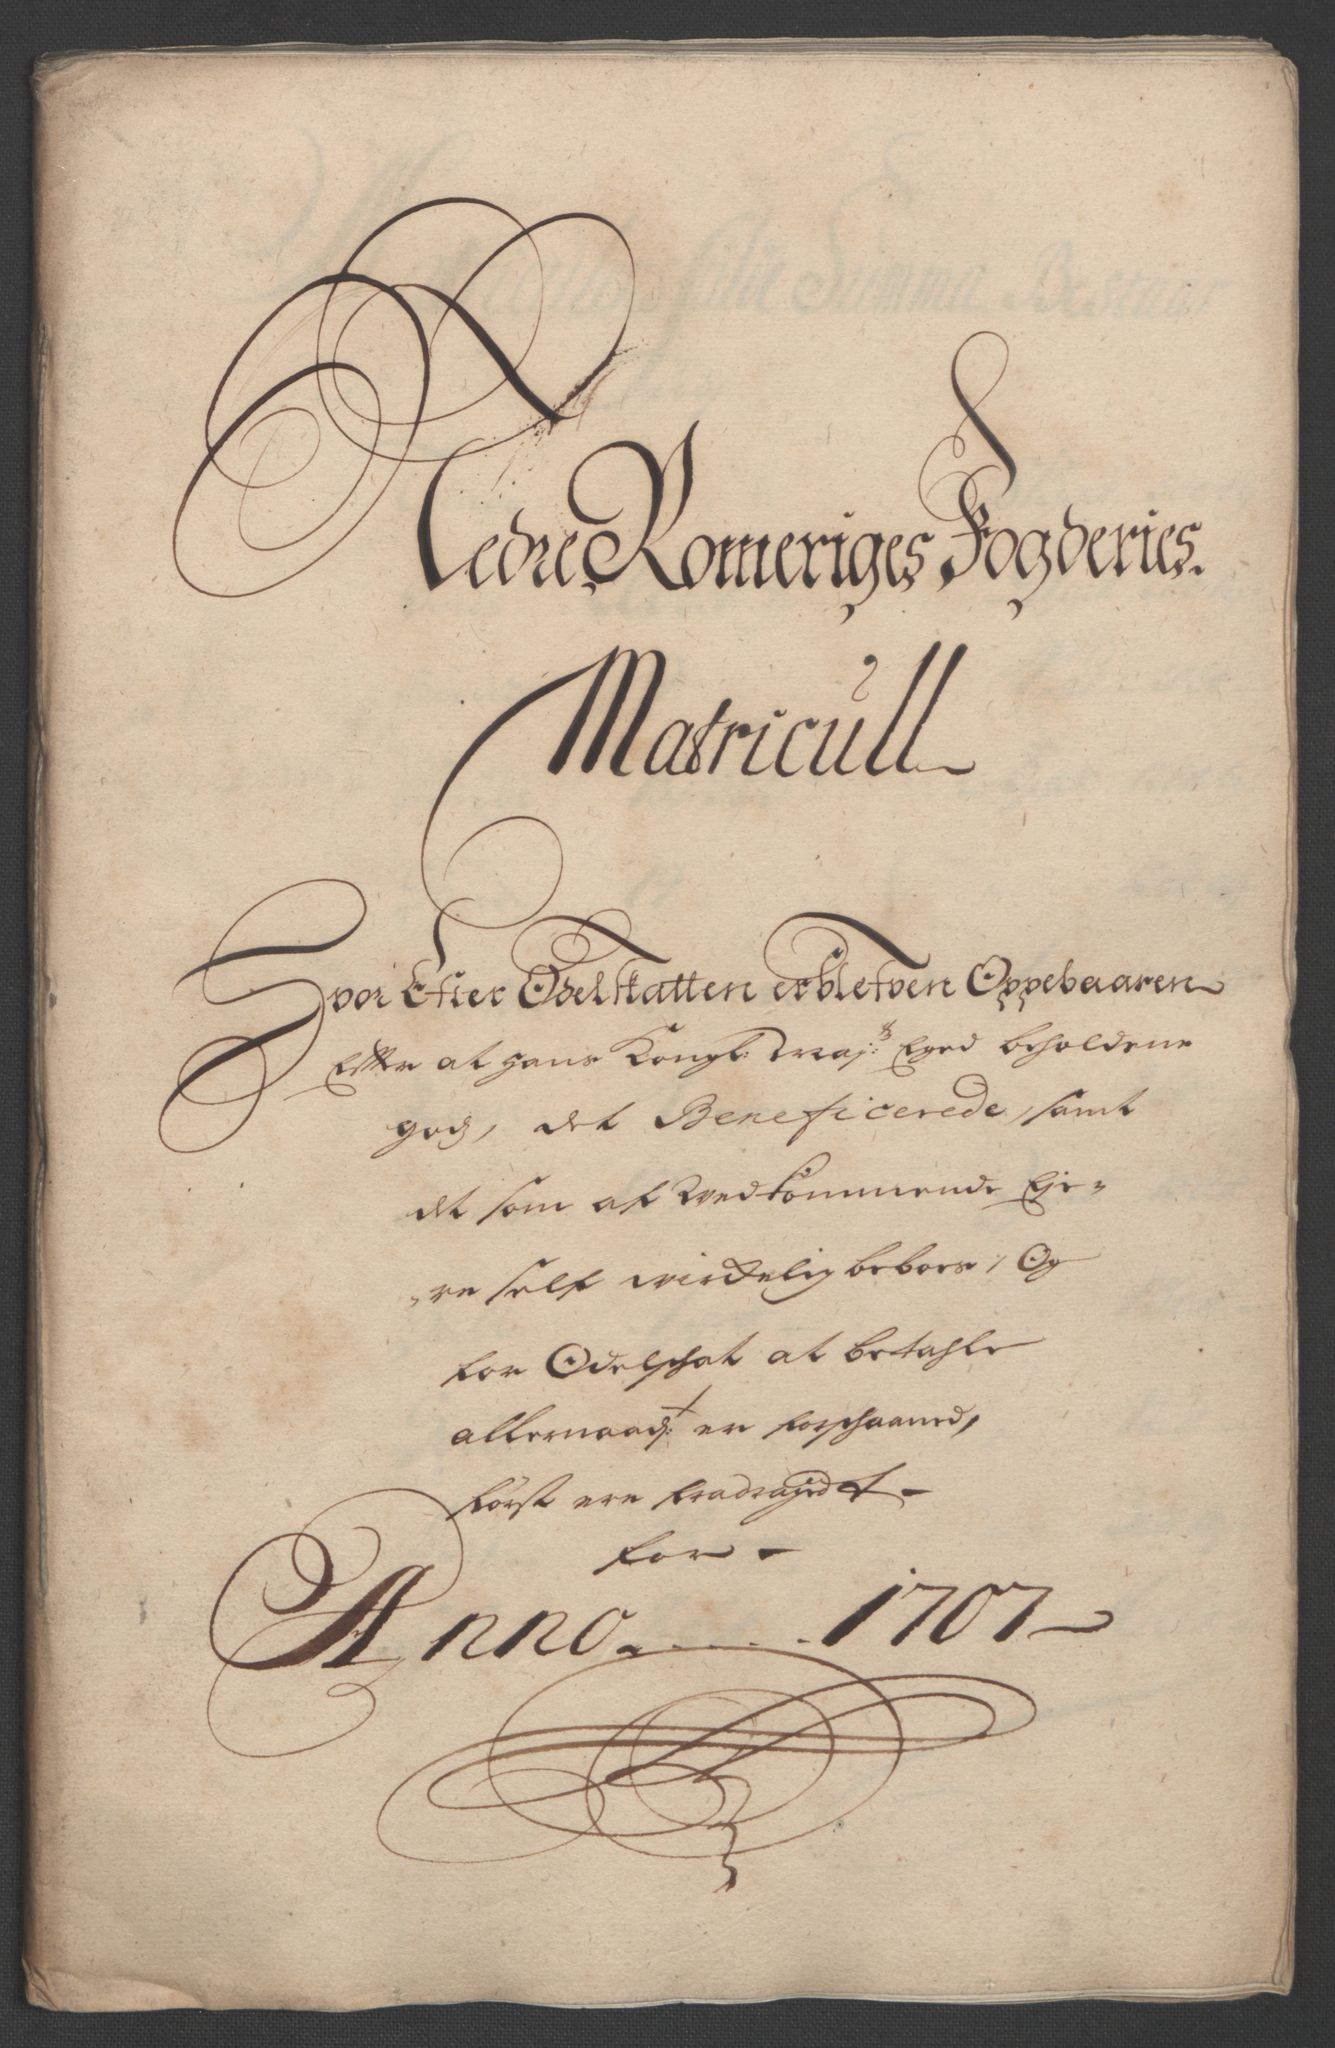 Nedre Romeriges Fogderies.
Matricull
Hvor Efter Odelskatten er blefven Oppebaaren
Efter at hans Kongl: May:ts Eged beholdene
godz, det Beneficerede, samt
det som af Vedkommende Eje-
-re self wirkelig beboes, Og
for Odelschat at betahle
allernaadst: er forschaaned,
først ere fradraged
for
Anno 1707